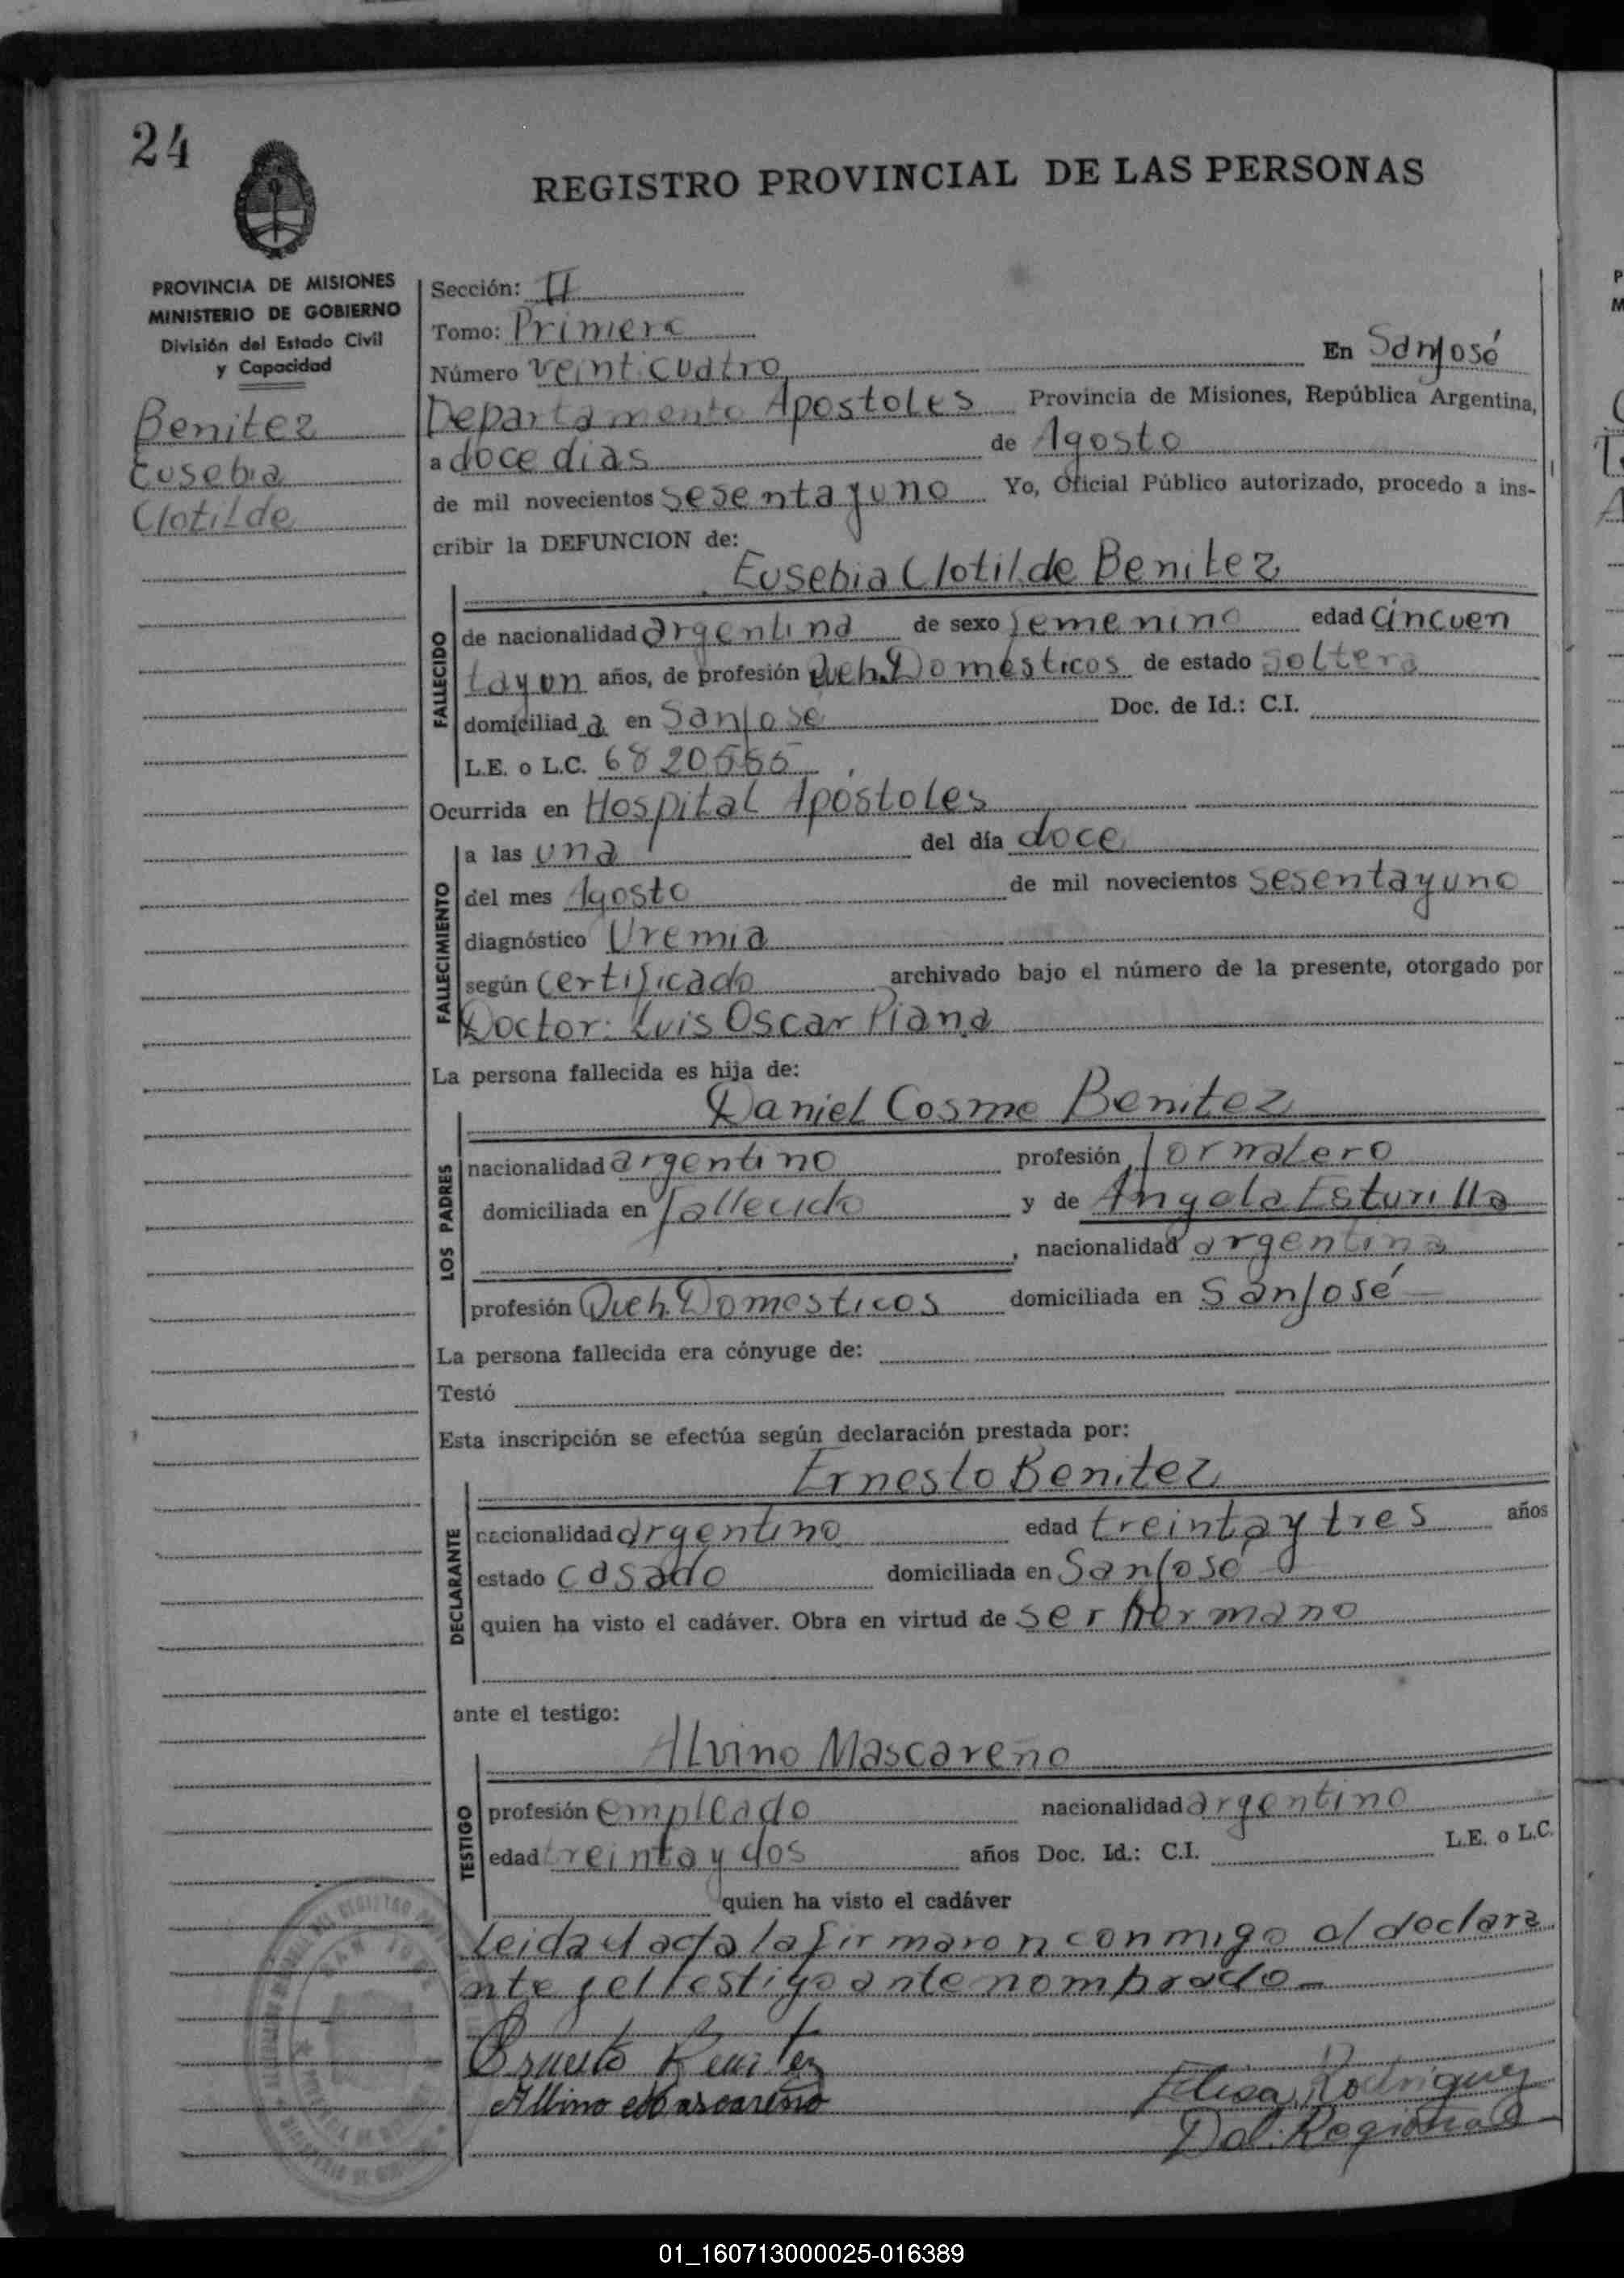 24
REGISTRO PROVINCIAL DE LAS PERSONAS
PROVINCIA DE MISIONES
MINISTERIO DE GOBIERNO
División del Estado Civil
y Capacidad
Benitez
Eusebia
Clotilde
Sección: II
Tomo: Primero
Número veinticuatro En San José
Departamento Apostoles Provincia de Misiones, República Argentina,
a doce dias de Agosto
de mil novecientos sesentayuno Yo, Oficial Público autorizado, procedo a ins-
cribir la DEFUNCION de:
Eusebia Clotilde Benitez
FALLECIDO
de nacionalidad argentina de sexo femenino edad cincuen
tayun años, de profesión Queh. Domésticos de estado soltera
domiciliad a en San José Doc. de Id.: C.I.
L.E. o L.C.
Ocurrida en Hospital Apóstoles
FALLECIMIENTO
a las una del día doce
del mes Agosto de mil novecientos sesentayuno
diagnóstico Uremia
según certificado archivado bajo el número de la presente, otorgado por
Doctor: Luis Oscar Piana
La persona fallecida es hija de:
Daniel Cosme Benitez
LOS PADRES
nacionalidad argentino profesión Jornalero
domiciliada en fallecido y de Angela
, nacionalidad argentina
profesión Queh. Domesticos domiciliada en San José
La persona fallecida era cónyuge de:
Testó
Esta inscripción se efectúa según declaración prestada por:
Ernesto Benitez
DECLARANTE
nacionalidad argentino edad treinta y tres años
estado casado domiciliada en San José
quien ha visto el cadáver. Obra en virtud de ser hermano
ante el testigo:
Alvino Mascareno
TESTIGO
profesión empleado nacionalidad argentino
edad treinta y dos años Doc. Id.: C.I. L.E. o L.C.
quien ha visto el cadáver
Leida el acta la firmaron conmigo el declara
nte y el testigo ante nombrado
Ernesto Benitez
Albino Mascareño
Elisa Rodriguez
Del. Registral
01_160713000025-016389